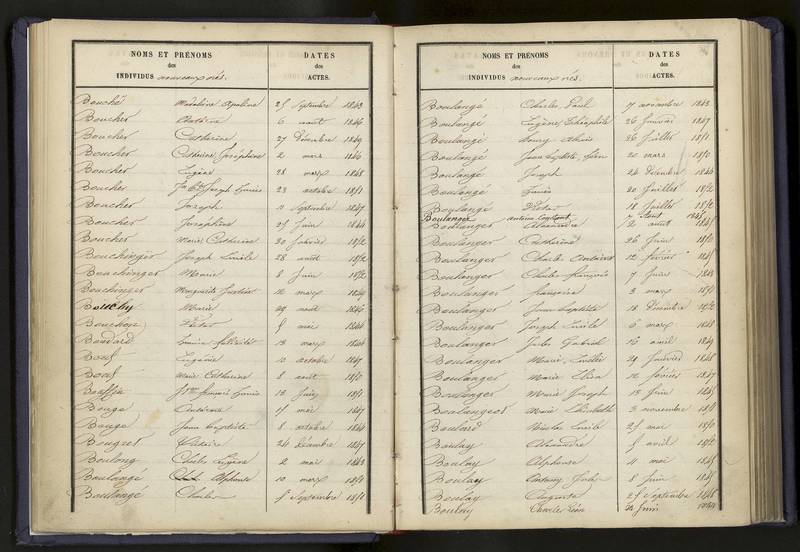 NOMS ET PRÉNOMS
des
INDIVIDUS nouveaux nés.
DATES
des
ACTES.
Bouché 1843
Boucher 6 août 1846
Boucher Catherine 27 décembre 1849
Boucher Catherine Joséphine 2 mars 1846
Boucher Eugène 28 mars 1848
Boucher Joseph Louis 23 octobre 1851
Boucher Joseph 11 septembre 1847
Boucher Joséphine 25 juin 1844
Boucher Marie Catherine 30 janvier 1852
Bouchinger Joseph Emile 28 août 1852
Bouchinger Marie 8 juin 1852
Bouchinger Marguerite 12 mars 1849
Bouchy Marie 29 août 1849
Bouchon Victor 5 mai 1844
Boudard félicité 13 mars 1844
Boeuf Eugénie 10 octobre 1847
Boeuf Marie Catherine 8 août 1850
Bouffin Louis 12 juin 1851
Bouge Antoine 15 mai 1847
Bouge Jean baptiste 8 octobre 1844
Bougret Victoire 24 décembre 1847
Boulong Charles Eugène 2 mai 1843
Boulangé Alphonse 10 mars 1851
Boulangé Charles 5 septembre 1851
NOMS ET PRÉNOMS
des
INDIVIDUS nouveaux nés.
DATES
des
ACTES.
Boulangé Charles Paul 7 novembre 1843
Boulangé Eugène 26 janvier 1847
Boulangé 26 juillet 1851
Boulangé Jean baptiste Léon 20 mars 1850
Boulangé Joseph 24 décembre 1846
Boulangé Louis 20 juillet 1852
Boulangé Victor 18 juillet 1852
Boulanger Antoine Constant 7 août 1845
Boulanger Alexandre 2 août 1845
Boulanger Catherine 26 juin 1850
Boulanger Charles Antoine 12 février 1845
Boulanger Charles françois 7 juin 1848
Boulanger françoise 3 mars 1851
Boulanger Jean baptiste 18 décembre 1852
Boulanger Joseph Emile 6 mars 1848
Boulanger Jules Gabriel 16 avril 1849
Boulanger Marie Emilie 29 janvier 1848
Boulanger Marie Elisa 12 février 1847
Boulanger Marie Joseph 18 juin 1845
Boulangeot Marie Elisabeth 3 novembre 1851
Boulard Nicolas Emile 25 mai 1850
Boulay Alexandre 5 avril 1852
Boulay Alphonse 11 mai 1845
Boulay Antoine Jules 8 juin 1845
Boulay Auguste 25 septembre 1848
Boulay Charles Léon juin